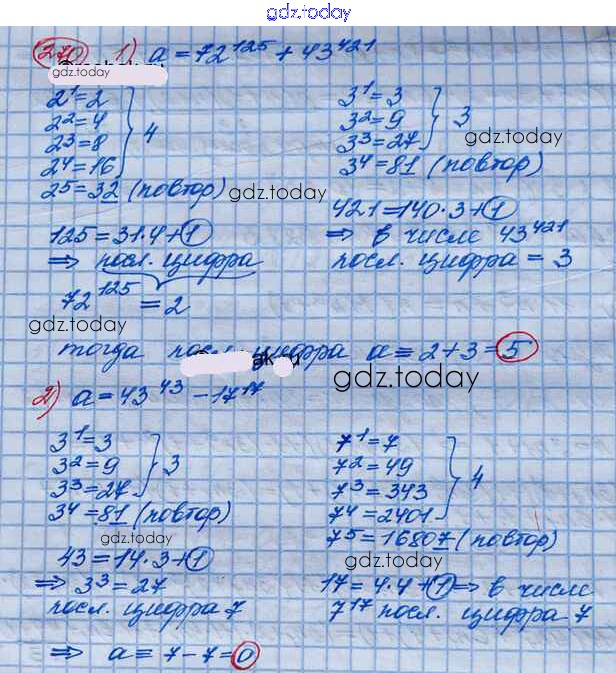 gdz.today
270 1) a = 72^125 + 43^421
gdz.today
2^1 = 2
2^2 = 4
2^3 = 8
2^4 = 16
4
2^5 = 32 (повтор)
3^1 = 3
3^2 = 9
3^3 = 27
3
gdz.today
3^4 = 81 (повтор)
gdz.today
125 = 31·4+1
⇒ посл. цифра
72^125 = 2
421 = 140·3+1
⇒ в числе 43^421
посл. цифра = 3
gdz.today
тогда посл. цифра a = 2+3 = 5
gdz.today
2) a = 43^43 - 17^17
3^1 = 3
3^2 = 9
3^3 = 27
3
3^4 = 81 (повтор)
gdz.today
43 = 14·3+1
⇒ 3^3 = 27
посл. цифра 7
7^1 = 7
7^2 = 49
7^3 = 343
7^4 = 2401
4
7^5 = 16807 (повтор)
gdz.today
17 = 4·4+1 ⇒ в числе
7^17 посл. цифра 7
⇒ a = 7-7 = 0